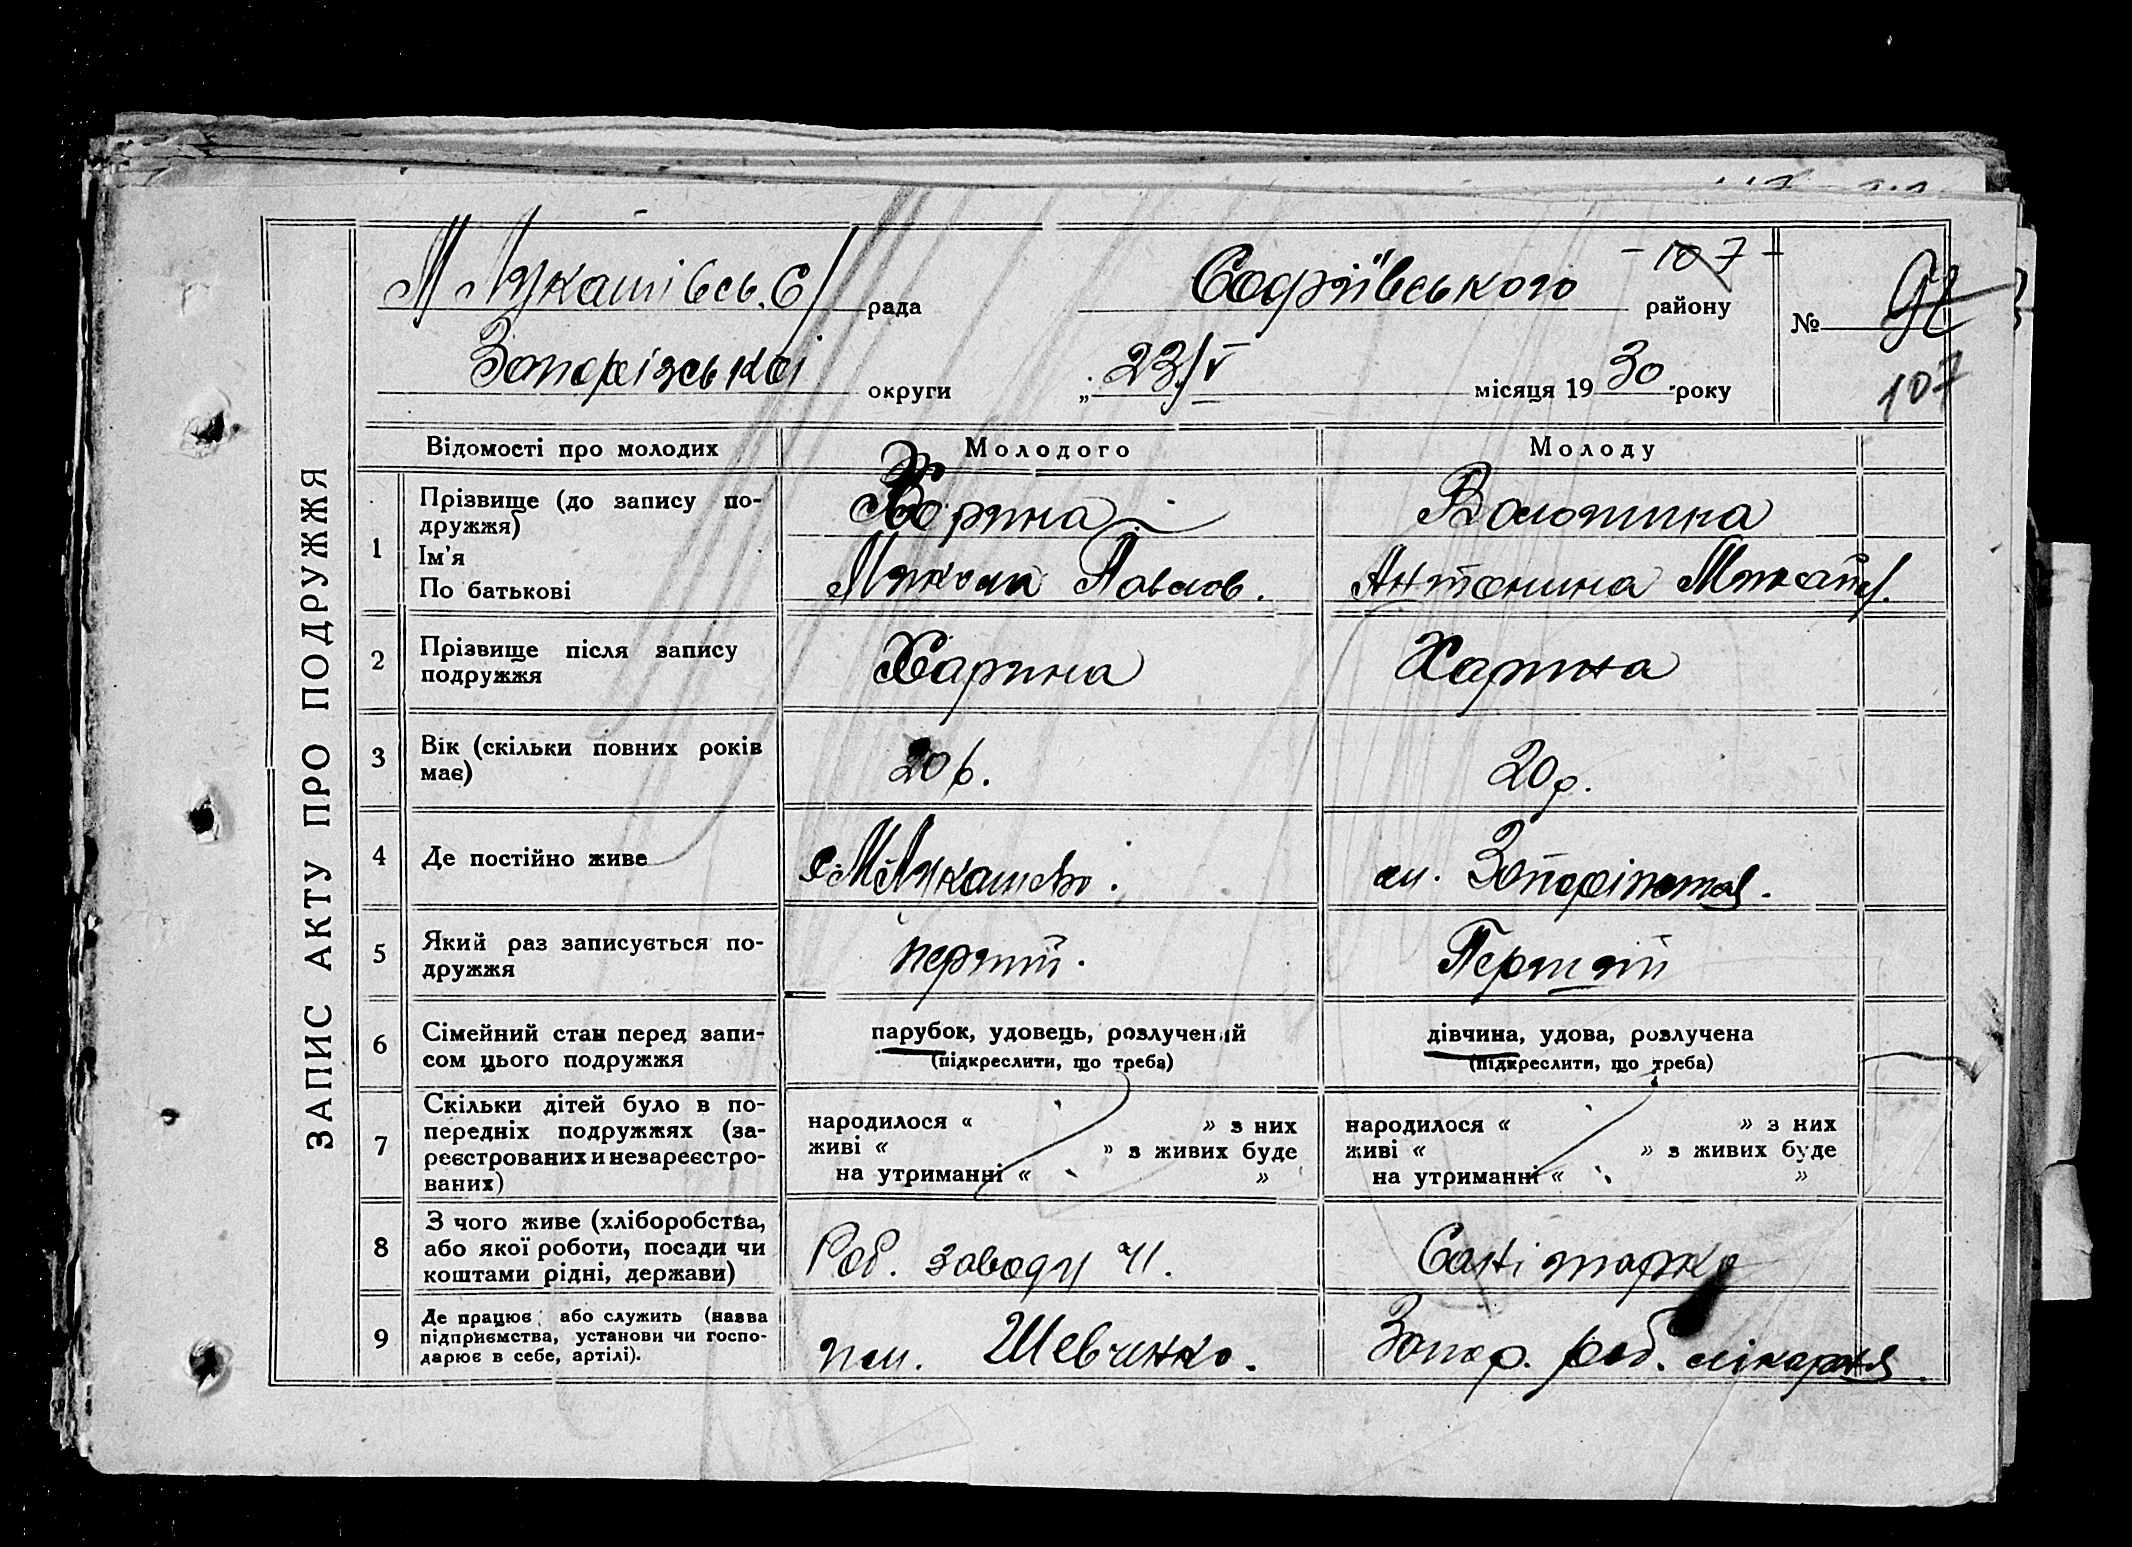 ЗАПИС АКТУ ПРО ПОДРУЖЖЯ
М Лукашівсь. С/ рада
Софіївського району
- 107 -
№ 92
107
Запорізької округи
„ 23/V місяця 1930 року
Відомості про молодих Молодого Молоду
1 Прізвище (до запису подружжя) Харина Волошина
Ім'я
По батькові Микола Павлов. Антонина Михайл.
2 Прізвище після запису
подружжя Харина Харина
3 Вік (скільки повних років
має) 20 р. 20 р.
4 Де постійно живе с М-Лукашево. ст. Запоріжжя.
5 Який раз записується по-
дружжя перший. Перший
6 Сімейний стан перед запи-
сом цього подружжя
парубок, удовець, розлучений
(підкреслити, що треба)
дівчина, удова, розлучена
(підкреслити, що треба)
7 Скільки дітей було в по-
передніх подружжях (за-
реєстрованих и незареєстро-
ваних)
народилося « » з них
живі « » з живих буде
на утриманні « »
народилося « » з них
живі « » з живих буде
на утриманні « »
8 З чого живе (хліборобства,
або якої роботи, посади чи
коштами рідні, держави)
Роб. заводу Санітарка
9 Де працює або служить (назва
підприємства, установи чи госпо-
дарює в себе, артілі).
Шевченко. Запор. роб. лікарня.